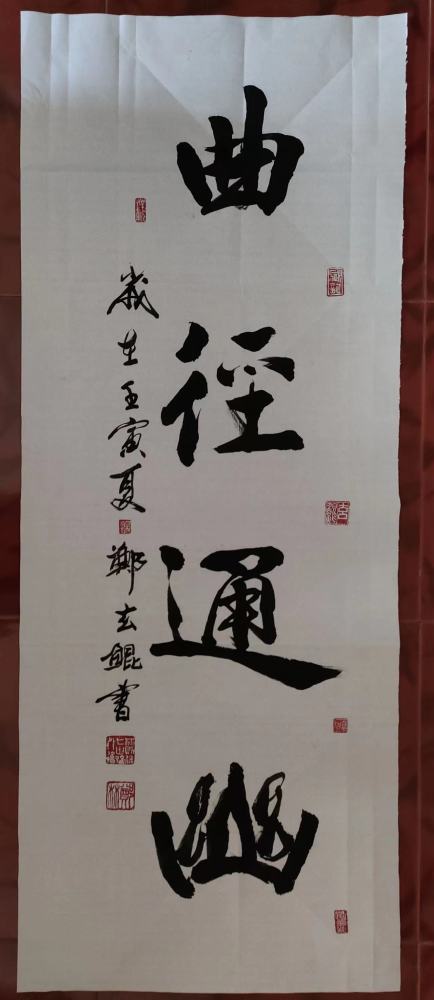 曲径通幽
歲在壬寅夏
鄭玄鯤書